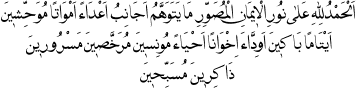 اَلْحَمْدُ لِلّٰهِ عَلٰى نُورِ الْاِيمَانِ الْمُصَوِّرِ مَا يُتَوَهَّمُ اَجَانِبَ اَعْدَاءً اَمْوَاتًا مُوَحِّشِينَ
اَيْتَامًا بَاكِينَ اَوِدَّاءَ اِخْوَانًا اَحْيَاءً مُونِسِينَ مُرَخَّصِينَ مَسْرُورِينَ
ذَاكِرِينَ مُسَبِّحِينَ